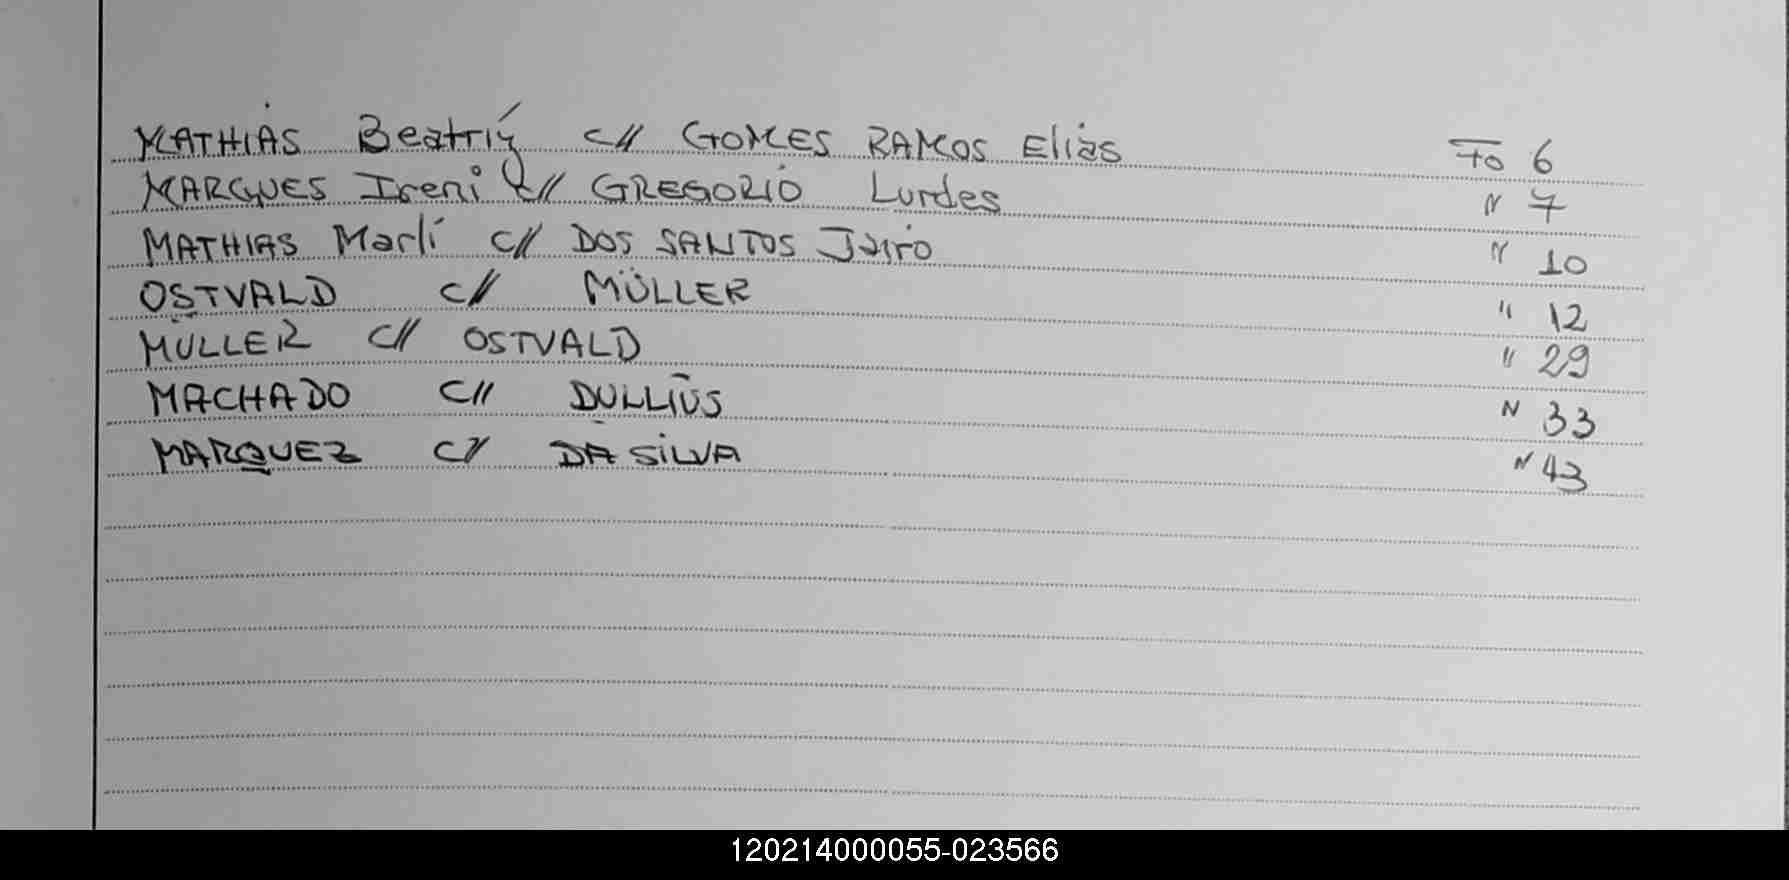 MATHIAS Beatriz c// GOMES RAMOS Elias Fo 6
MARQUES Ireni c// GREGORIO Lurdes " 7
MATHIAS Marli c// DOS SANTOS Jairo " 10
OSTVALD c// MÜLLER " 12
MÜLLER c// OSTVALD " 29
MACHADO c// DULLIUS " 33
MARQUEZ c// DA SILVA " 43
120214000055-023566